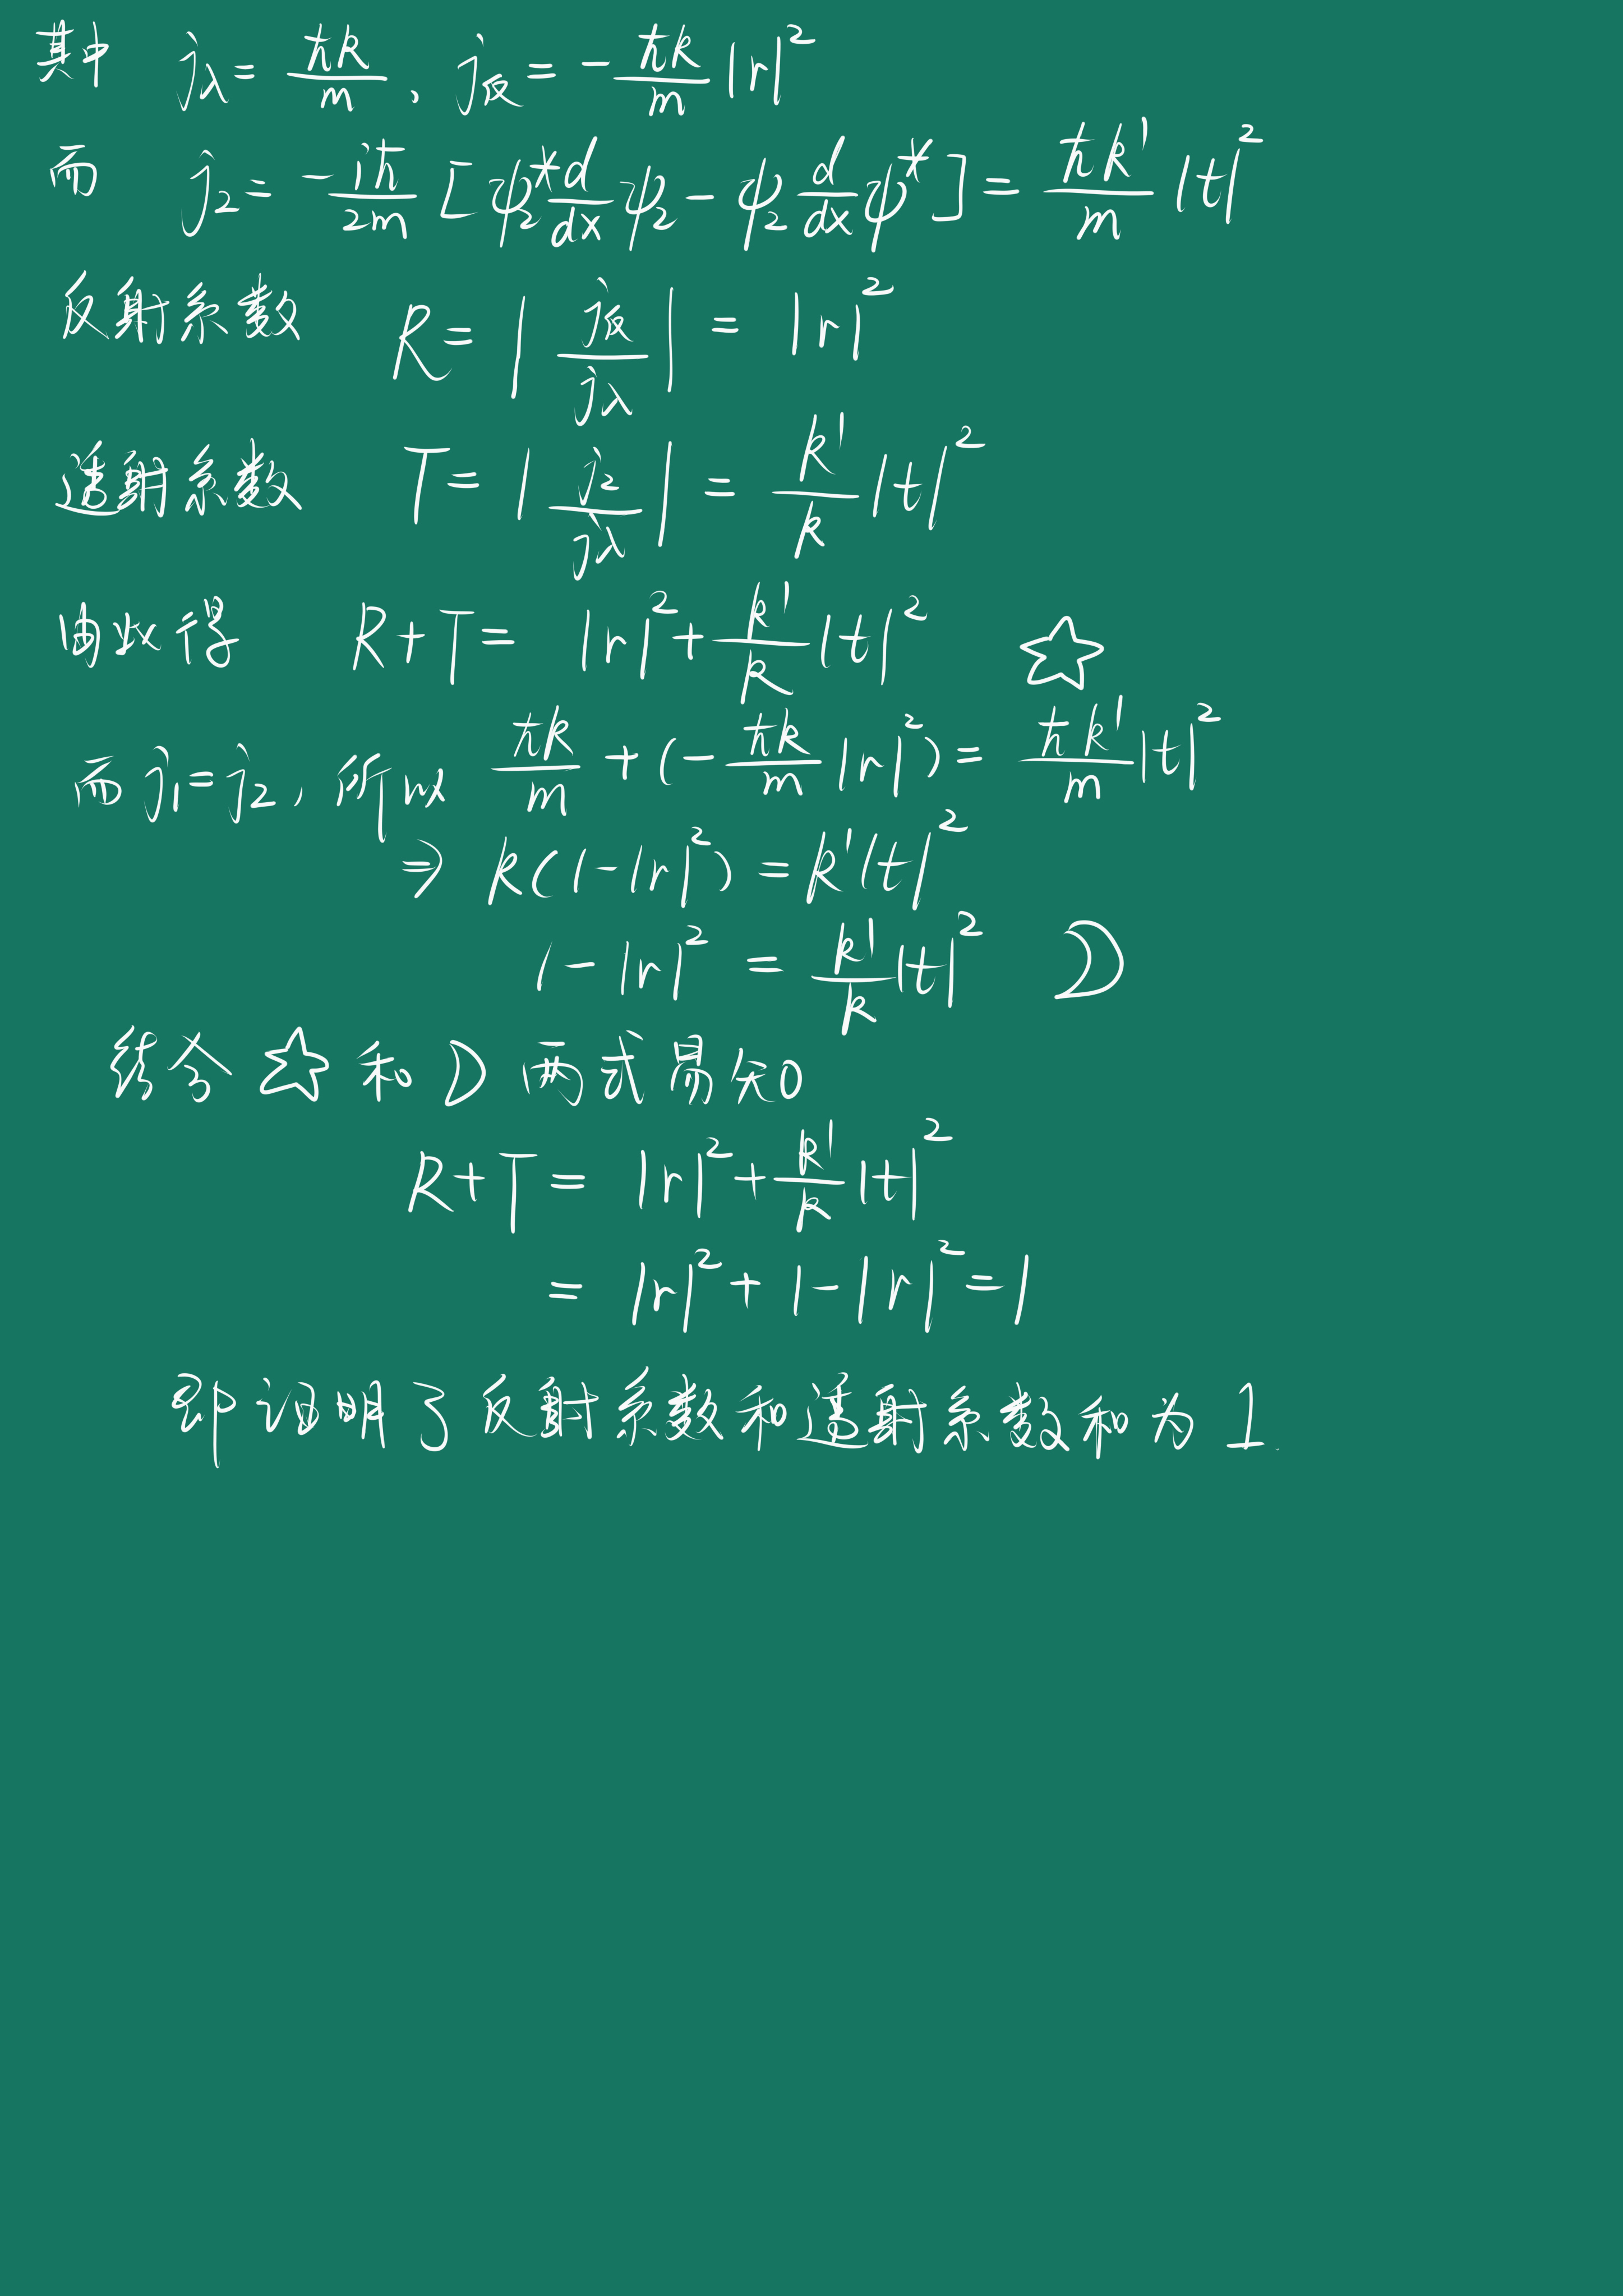 其中 j入 = ħk/m、j反 = -ħk/m |r|²
而 j₂ = -iħ/2m [ψ₂* d/dx ψ₂ - ψ₂ d/dx ψ*] = ħk'/m |t|²
反射系数 R = |j反/j入| = |r|²
透射系数 T = |j₂/j入| = k'/k |t|²
由此得 R+T = |r|² + k'/k |t|² ☆
而 j₁=j₂, 所以 ħk/m + (-ħk/m |r|²) = ħk'/m |t|²
⇒ k(1-|r|²) = k'|t|²
1-|r|² = k'/k |t|² ☽
结合 ☆ 和 ☽ 两式易知
R+T = |r|² + k'/k |t|²
= |r|² + 1 - |r|² = 1
即证明了反射系数和透射系数和为1.